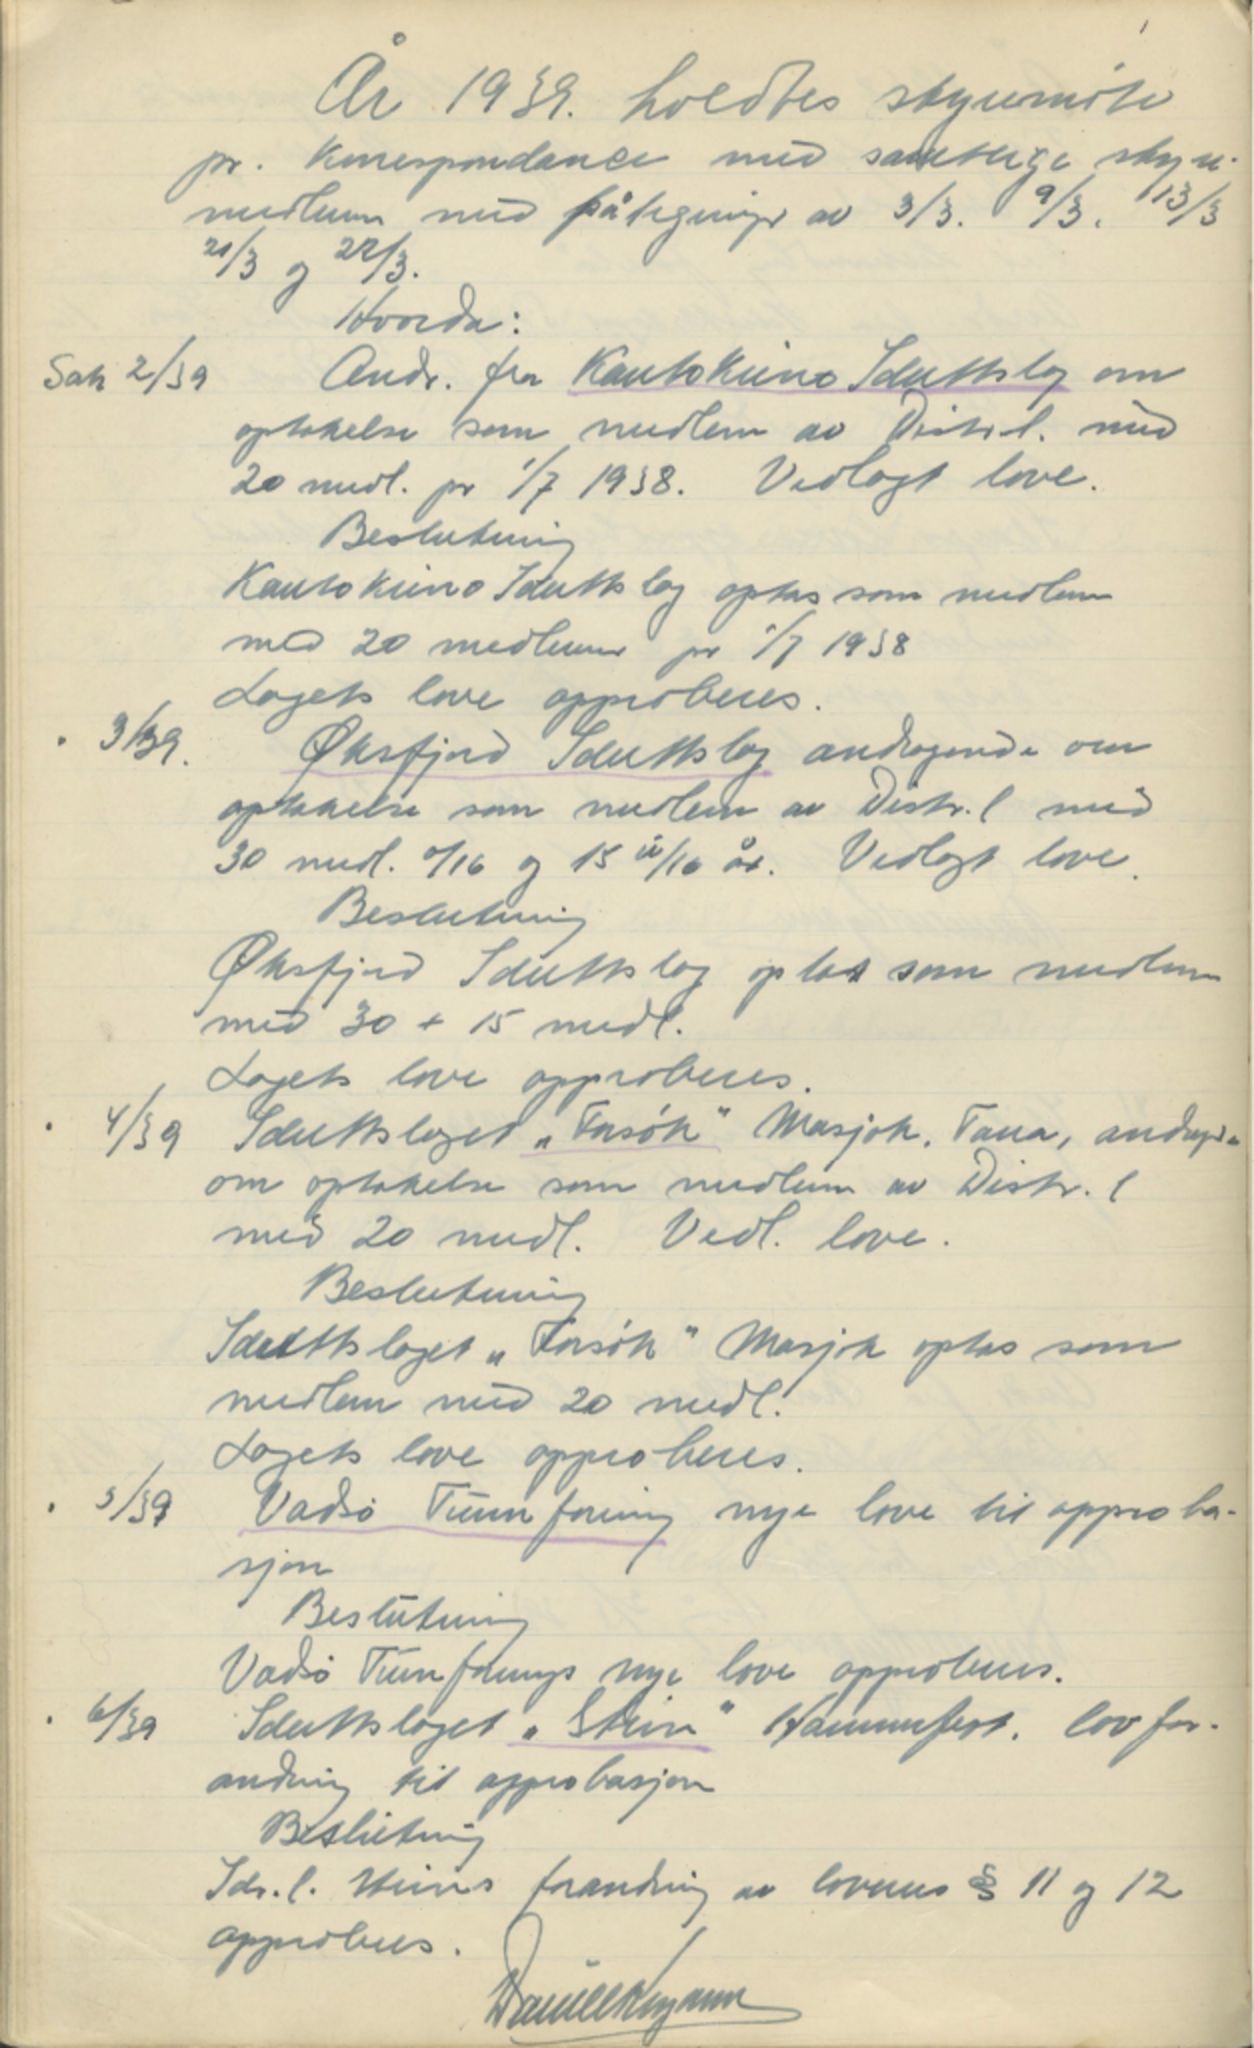 År 1939. holdtes styremöte
pr. korrespondance med samtlige styre-
medlem med påtegninger av 3/3. 9/3. 13/3
21/3 og 22/3.
Hvorda:
Sak 2/39 Andr. fra Kautokeino Idrettslag om
optakelse som medlem av Distr.l. med
20 medl. pr 1/7 1938. Vedlagt love.
Beslutning
Kautokeino Idrettslag optas som medlem
med 20 medlemmer pr 1/7 1938
Lagets love approberes.
" 3/39. Øksfjord Idrettslag andragende om
optakelse som medlem av Distr.l med
30 medl. o/16 og 15 u/16 år. Vedlagt love.
Beslutning
Øksfjord Idrettslag optas som medlem
med 30 + 15 medl.
Lagets love approberes.
" 4/39 Idrettslaget „Forsök" Masjok, Tana, andragende
om optakelse som medlem av Distr.l
med 20 medl. Vedl. love.
Beslutning
Idrettslaget „Forsök" Masjok optas som
medlem med 20 medl.
Lagets love approberes.
" 5/39 Vadsö Turnforening nye love til approba-
sjon
Beslutning
Vadsö Turnforenings nye love approberes.
" 6/39 Idrettslaget „Stein" Hammerfest. lovfor-
andring til approbasjon
Beslutning
Idr.l. Steins forandring av lovenes § 11 og 12
approberes.